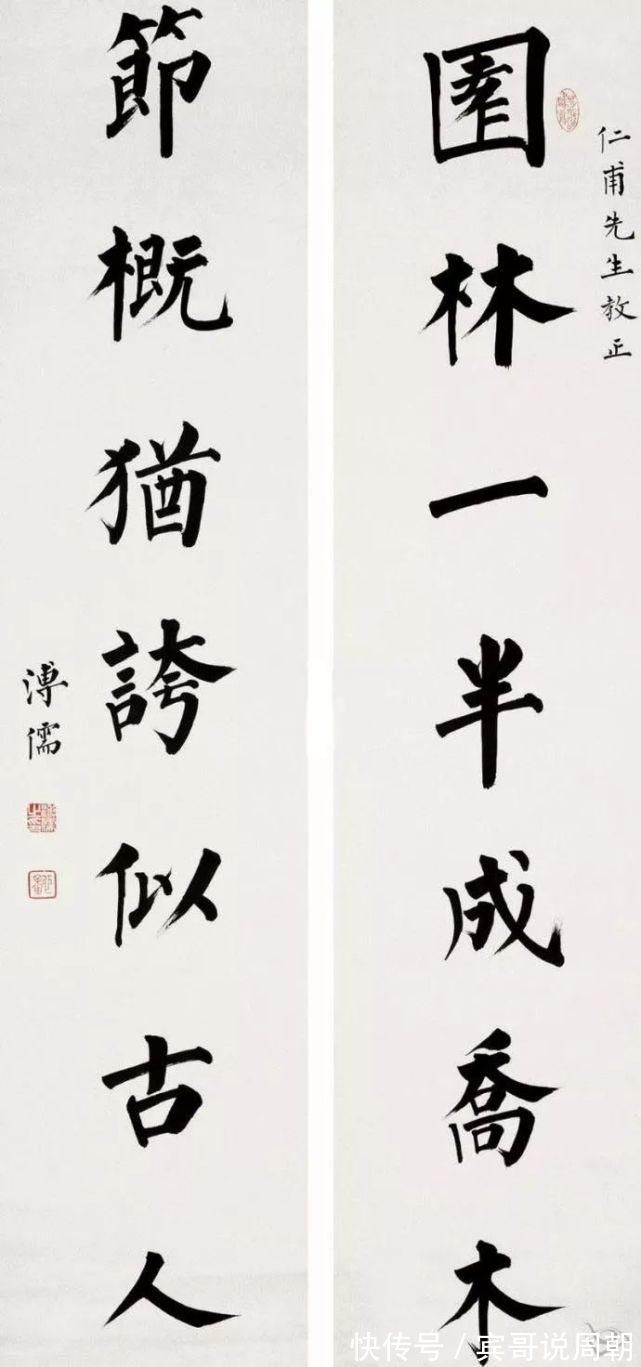 仁甫先生教正
園林一半成喬木
節概猶誇似古人
溥儒
快传号 / 宾哥说周朝